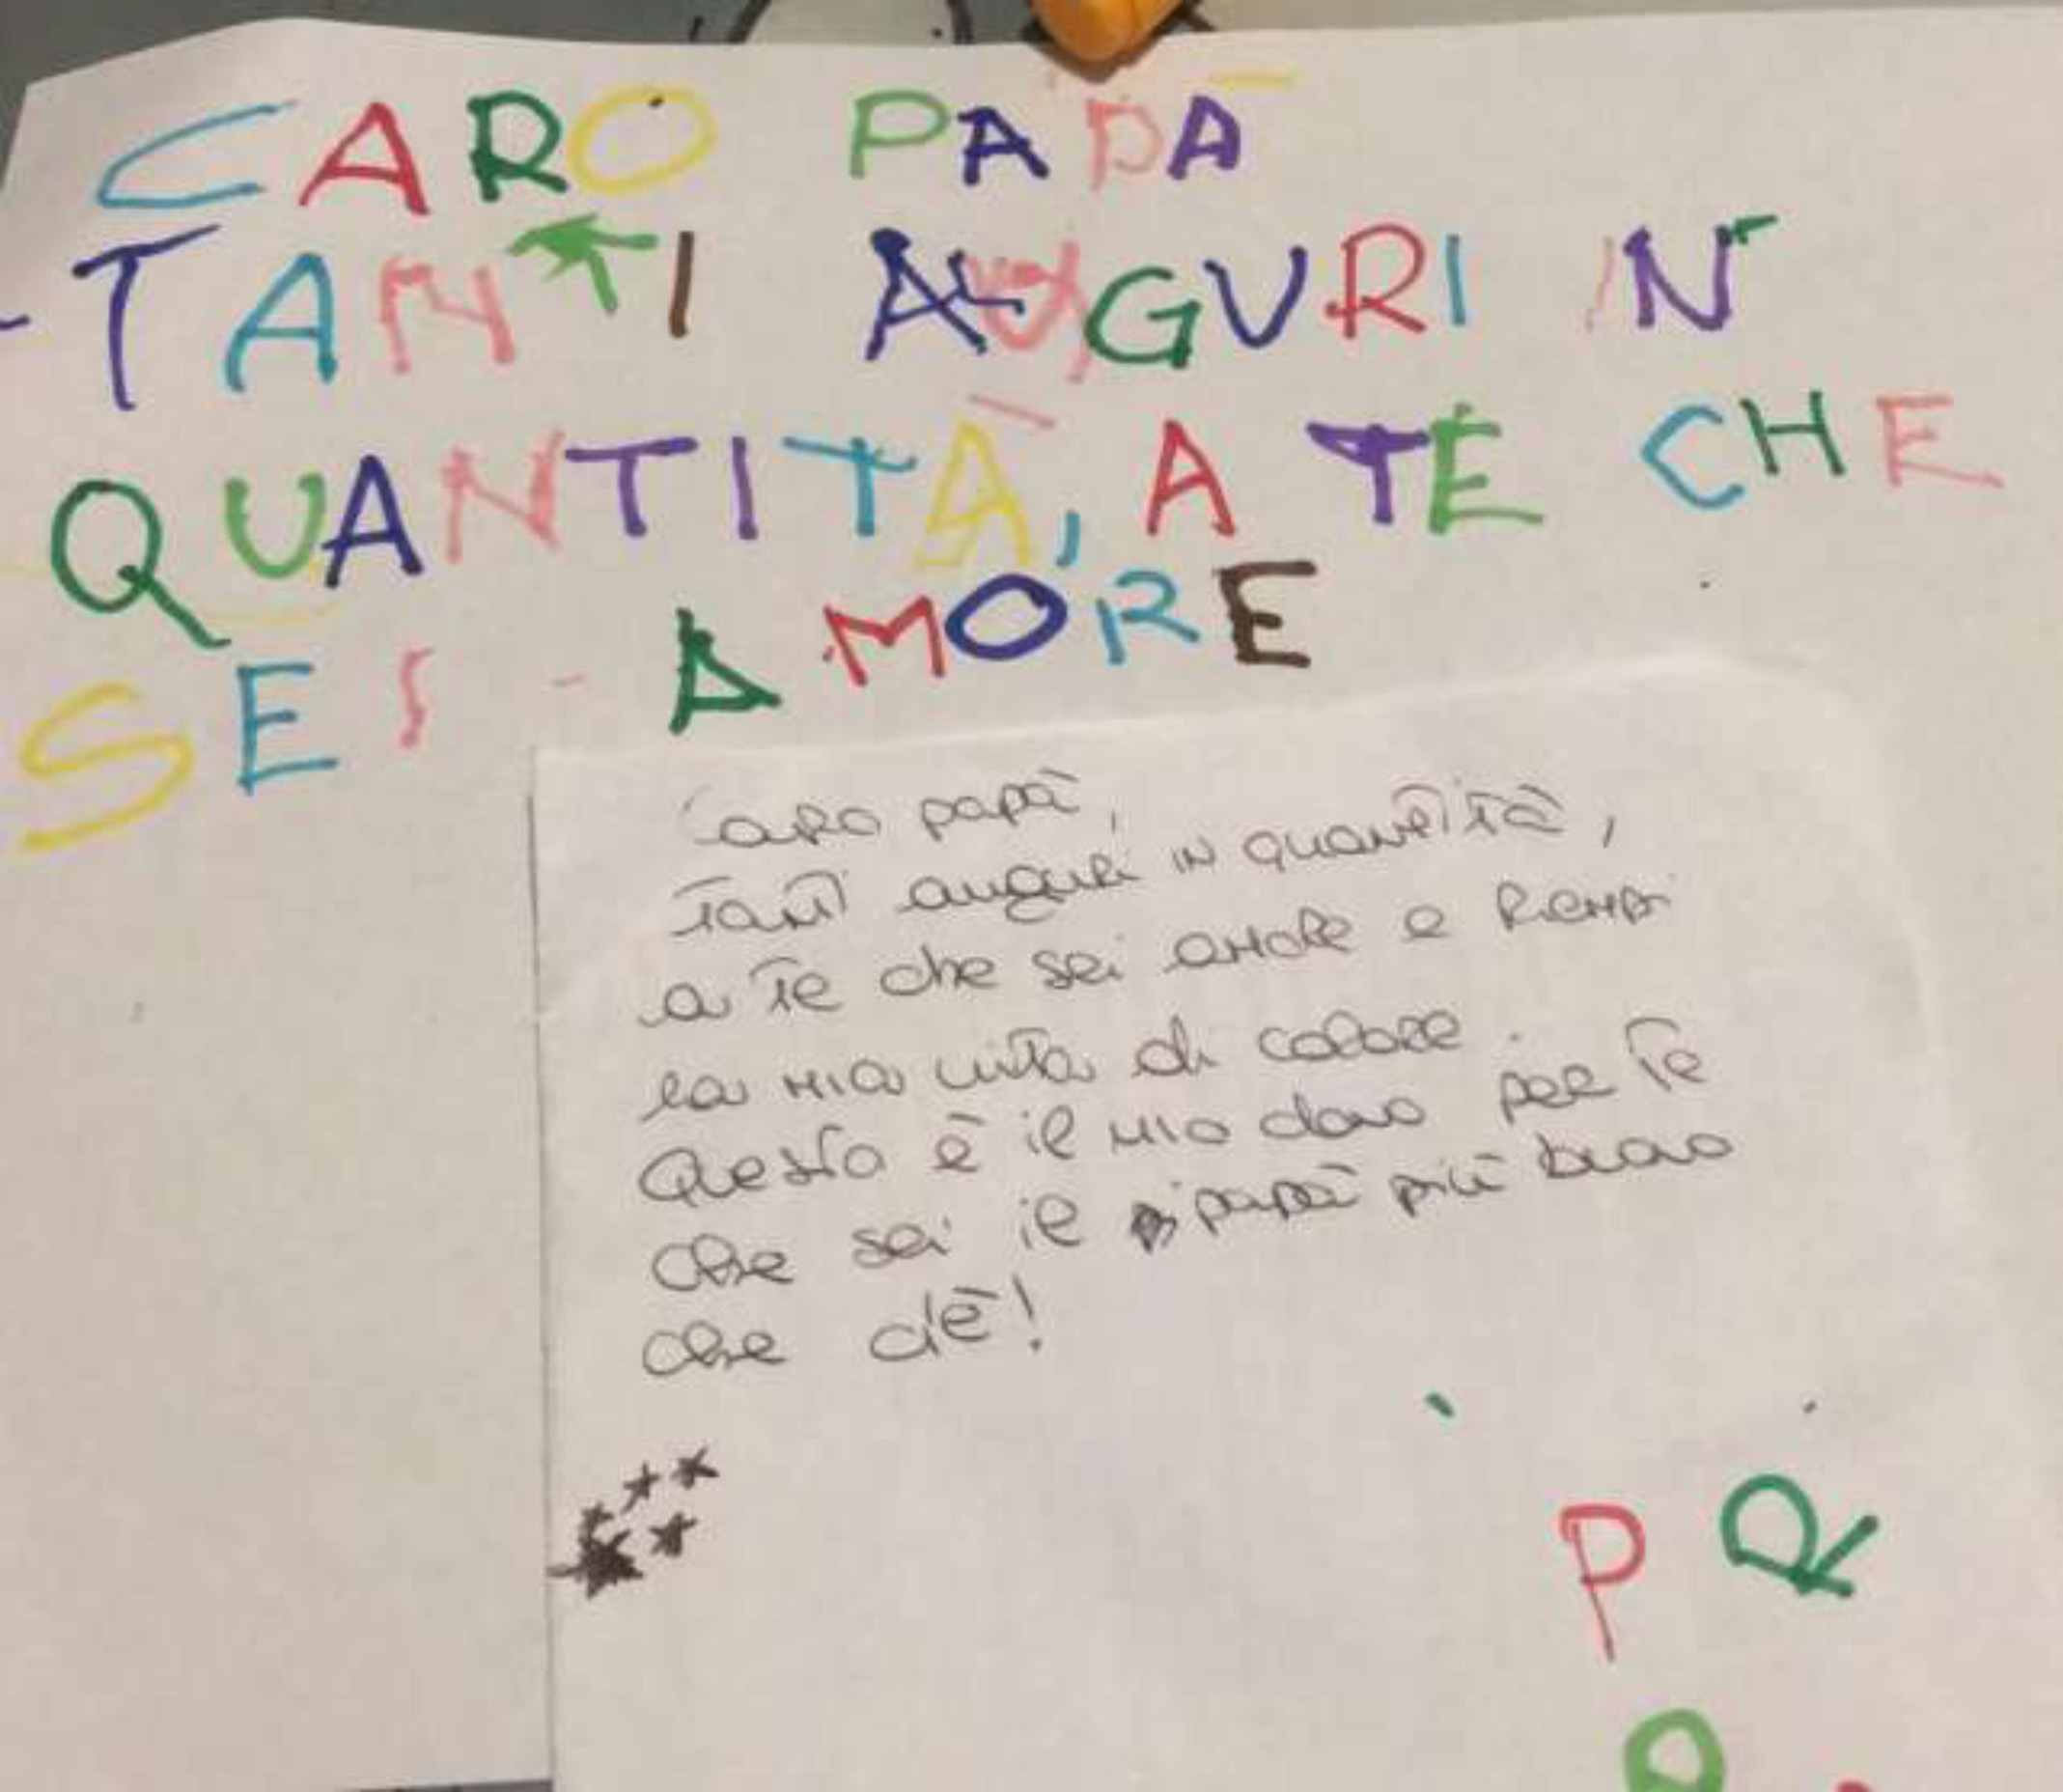 CARO PAPÀ
TANTI AUGURI IN
QUANTITÀ, A TE CHE
SEI AMORE
Caro papà,
Tanti auguri in quantità,
a te che sei amore e riempi
la mia vita di colore.
Questo è il mio dono per te
che sei il papà più buono
che c'è!
P R